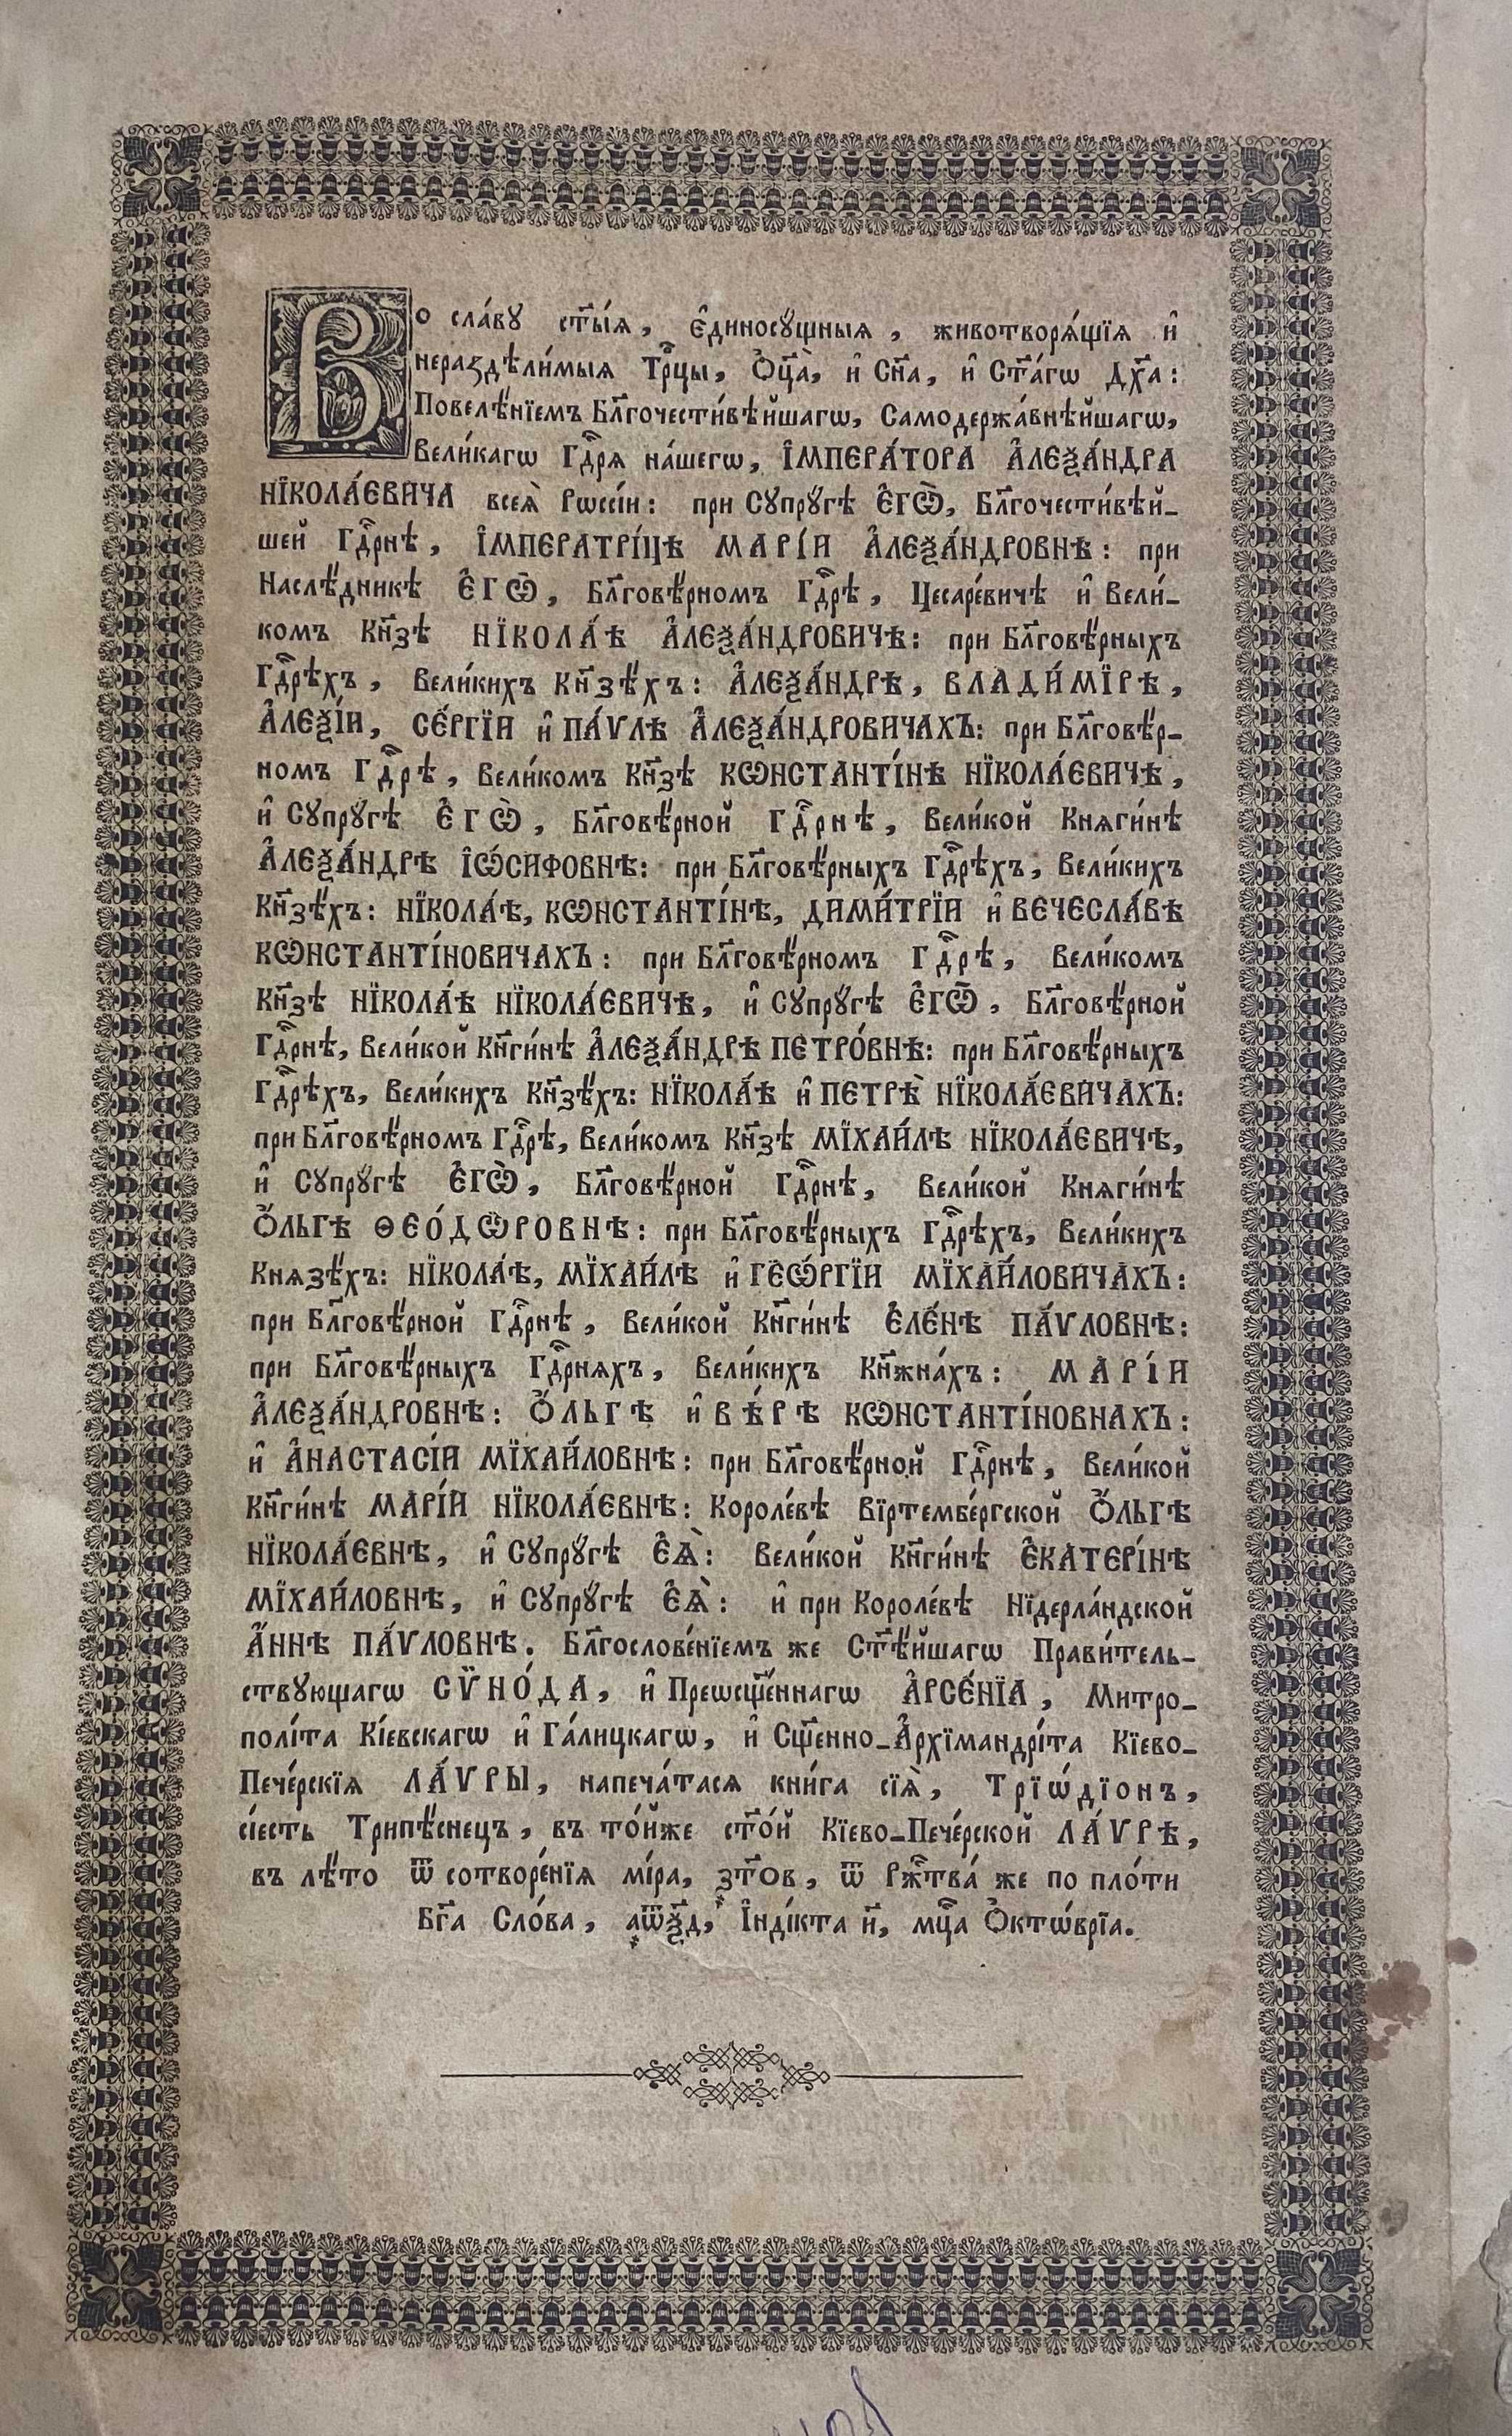 Во сла́вꙋ ст҃ы́ѧ, є҆диносꙋ́щныѧ, животворѧ́щїѧ и҆
нераздѣли́мыѧ Трⷪ҇цы, Ѻ҆ц҃а̀, и҆ Сн҃а, и҆ Ст҃а́гѡ Дх҃а:
Повелѣ́нїемъ Бл҃гочести́вѣйшагѡ, Самодержа́внѣйшагѡ,
Вели́кагѡ Гдⷭ҇рѧ на́шегѡ, І҆МПЕРА́ТОРА А҆ЛЕѮА́НДРА
НЇКОЛА́ЕВИЧА всеѧ̀ Рѡссі́и: при Сꙋпрꙋ́гѣ Є҆ГѠ̀, Бл҃гочести́вѣй-
шей Гдⷭ҇рнѣ, І҆МПЕРАТРІ́ЦѢ МАРІ́И А҆ЛЕѮА́НДРОВНѢ: при
Наслѣ́дникѣ Є҆ГѠ̀, Бл҃говѣ́рномъ Гдⷭ҇рѣ, Цесаре́вичѣ и҆ Вели́-
комъ Кн҃зѣ НЇКОЛА́Ѣ А҆ЛЕѮА́НДРОВИЧѢ: при Бл҃говѣ́рныхъ
Гдⷭ҇рѣхъ, Вели́кихъ Кн҃зѣ́хъ: А҆ЛЕѮА́НДРѢ, ВЛАДИ́МЇРѢ,
А҆ЛЕѮІ́И, СЕ́РГЇИ и҆ ПА́ѴЛѢ А҆ЛЕѮА́НДРОВИЧАХЪ: при Бл҃говѣ́р-
номъ Гдⷭ҇рѣ, Вели́комъ Кн҃зѣ КѠНСТАНТІ́НѢ НЇКОЛА́ЕВИЧѢ,
и҆ Сꙋпрꙋ́гѣ Є҆ГѠ̀, Бл҃говѣ́рной Гдⷭ҇рнѣ, Вели́кой Кнѧги́нѣ
А҆ЛЕѮА́НДРѢ І҆Ѡ́СИФОВНѢ: при Бл҃говѣ́рныхъ Гдⷭ҇рѣхъ, Вели́кихъ
Кн҃зѣ́хъ: НЇКОЛА́Ѣ, КѠНСТАНТІ́НѢ, ДИМИ́ТРЇИ и҆ ВЕЧЕСЛА́ВѢ
КѠНСТАНТІ́НОВИЧАХЪ: при Бл҃говѣ́рномъ Гдⷭ҇рѣ, Вели́комъ
Кн҃зѣ НЇКОЛА́Ѣ НЇКОЛА́ЕВИЧѢ, и҆ Сꙋпрꙋ́гѣ Є҆ГѠ̀, Бл҃говѣ́рной
Гдⷭ҇рнѣ, Вели́кой Кн҃ги́нѣ А҆ЛЕѮА́НДРѢ ПЕТРО́ВНѢ: при Бл҃говѣ́рныхъ
Гдⷭ҇рѣхъ, Вели́кихъ Кн҃зѣ́хъ: НЇКОЛА́Ѣ и҆ ПЕТРѢ̀ НЇКОЛА́ЕВИЧАХЪ:
при Бл҃говѣ́рномъ Гдⷭ҇рѣ, Вели́комъ Кн҃зѣ МЇХАИ́ЛѢ НЇКОЛА́ЕВИЧѢ,
и҆ Сꙋпрꙋ́гѣ Є҆ГѠ̀, Бл҃говѣ́рной Гдⷭ҇рнѣ, Вели́кой Кнѧги́нѣ
Ѻ҆́ЛЬГѢ ѲЕО́ДѠРОВНѢ: при Бл҃говѣ́рныхъ Гдⷭ҇рѣхъ, Вели́кихъ
Кнѧзѣ́хъ: НЇКОЛА́Ѣ, МЇХАИ́ЛѢ и҆ ГЕѠ́РГЇИ МЇХАИ́ЛОВИЧАХЪ:
при Бл҃говѣ́рной Гдⷭ҇рнѣ, Вели́кой Кн҃ги́нѣ Є҆ЛЕ́НѢ ПА́ѴЛОВНѢ:
при Бл҃говѣ́рныхъ Гдⷭ҇рнѧхъ, Вели́кихъ Кн҃жна́хъ: МАРІ́И
А҆ЛЕѮА́НДРОВНѢ: Ѻ҆́ЛЬГѢ и҆ ВѢ́РѢ КѠНСТАНТІ́НОВНАХЪ:
и҆ А҆НАСТАСІ́И МЇХАИ́ЛОВНѢ: при Бл҃говѣ́рной Гдⷭ҇рнѣ, Вели́кой
Кн҃ги́нѣ МАРІ́И НЇКОЛА́ЕВНѢ: Короле́вѣ Вїртембе́ргской Ѻ҆́ЛЬГѢ
НЇКОЛА́ЕВНѢ, и҆ Сꙋпрꙋ́гѣ Є҆Ѧ̀: Вели́кой Кн҃ги́нѣ Є҆КАТЕРІ́НѢ
МЇХАИ́ЛОВНѢ, и҆ Сꙋпрꙋ́гѣ Є҆Ѧ̀: и҆ при Короле́вѣ Нїдерла́ндской
А҆́ННѢ ПА́ѴЛОВНѢ. Бл҃гослове́нїемъ же Ст҃ѣ́йшагѡ Прави́тель-
ствꙋющагѡ СѴ̈НО́ДА, и҆ Преѡсщ҃е́ннагѡ А҆РСЕ́НЇА, Митро-
полі́та Кі́евскагѡ и҆ Га́лицкагѡ, и҆ Сщ҃е́нно-А҆рхїмандрі́та Кїево-
Пече́рскїѧ ЛА́ѴРЫ, напеча́тасѧ кни́га сїѧ̀, Трїѡ́дїонъ,
сі́есть Трипѣ́снецъ, въ то́йже ст҃о́й Кїево-Пече́рской ЛА́ѴРѢ,
въ лѣ́то ѿ сотворе́нїѧ мі́ра, ҂зт҃ов, ѿ Ржⷭ҇тва́ же по пло́ти
Бг҃а Сло́ва, ҂аѿѯ҃д, І҆нді́кта и҃, мц҃а Ѻ҆ктѡ́врїа.